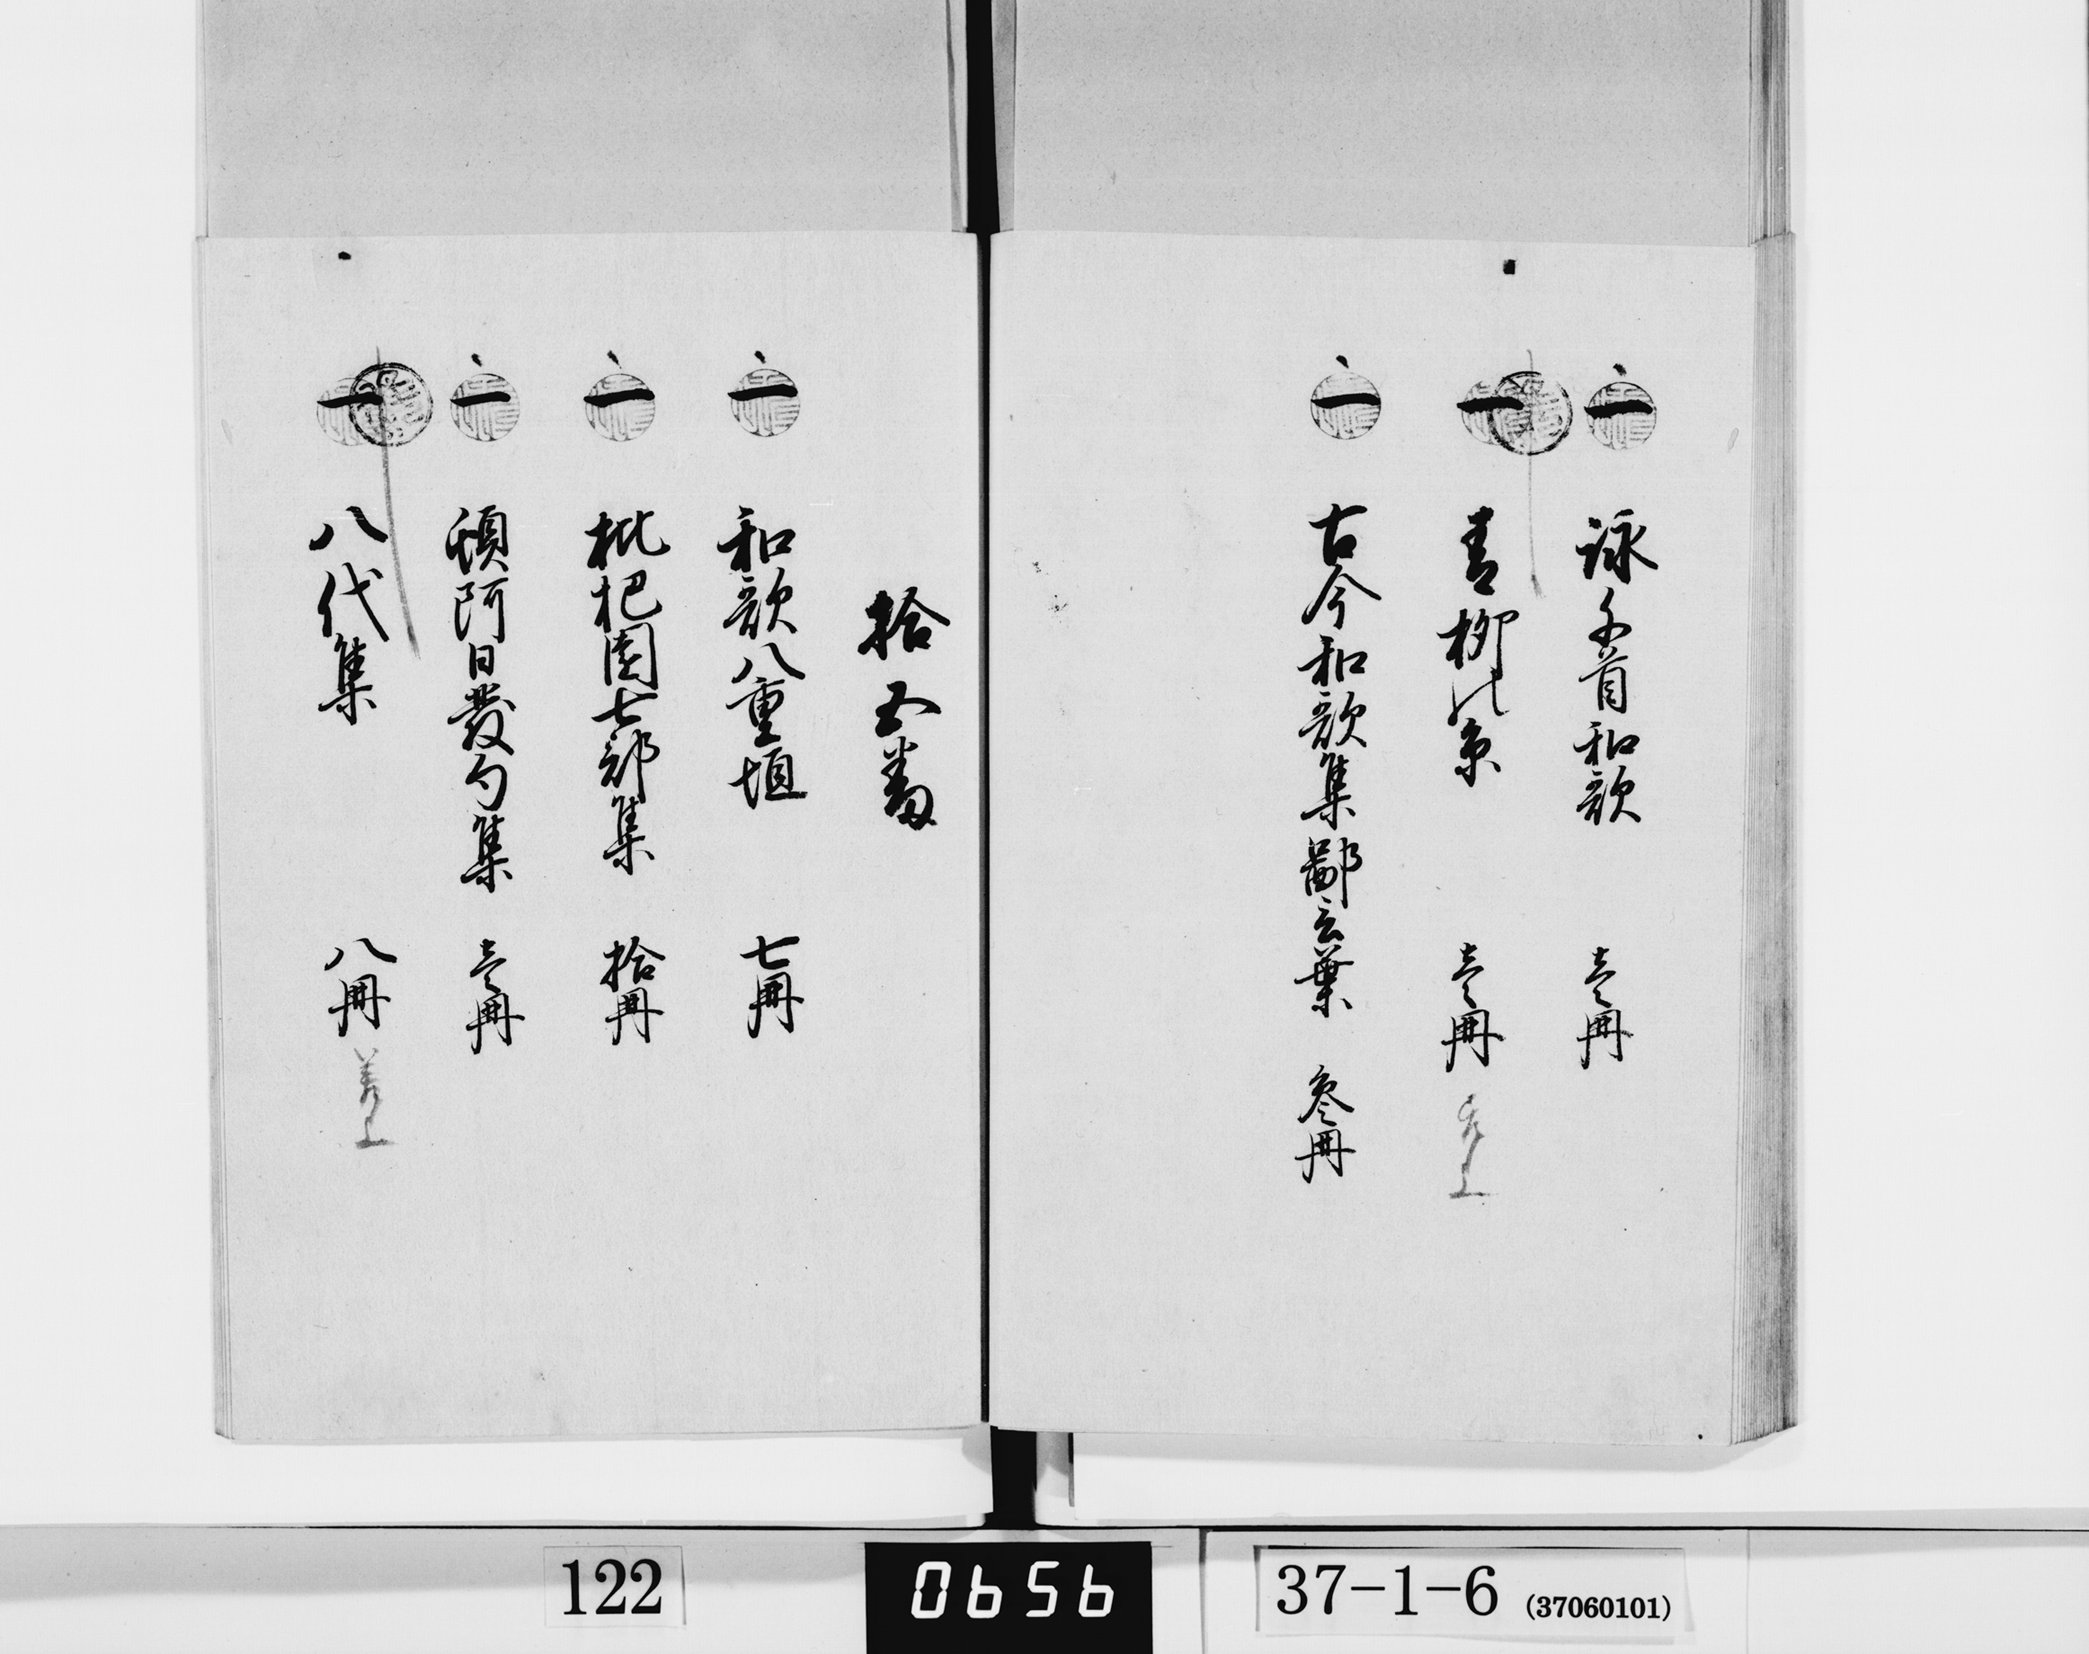 一 詠千首和歌 壱冊
一 青柳の糸 壱冊
一 古今和歌集鄙言葉 参冊
拾五番
一 和歌八重垣 七冊
一 枇杷園七部集 拾冊
一 頓阿日發句集 壱冊
一 八代集 八冊
122
0656
37-1-6 (37060101)